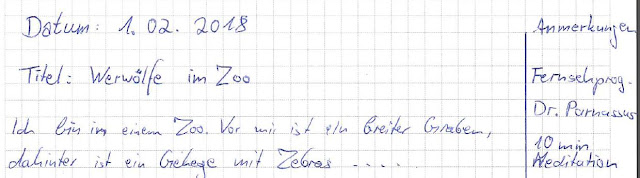 Datum: 1. 02. 2018
Titel: Werwölfe im Zoo
Ich bin in einem Zoo. Vor mir ist ein breiter Graben,
dahinter ist ein Gehege mit Zebras .....
Anmerkungen
Fernsehprog.
Dr. Parnassus
10 min
Meditation